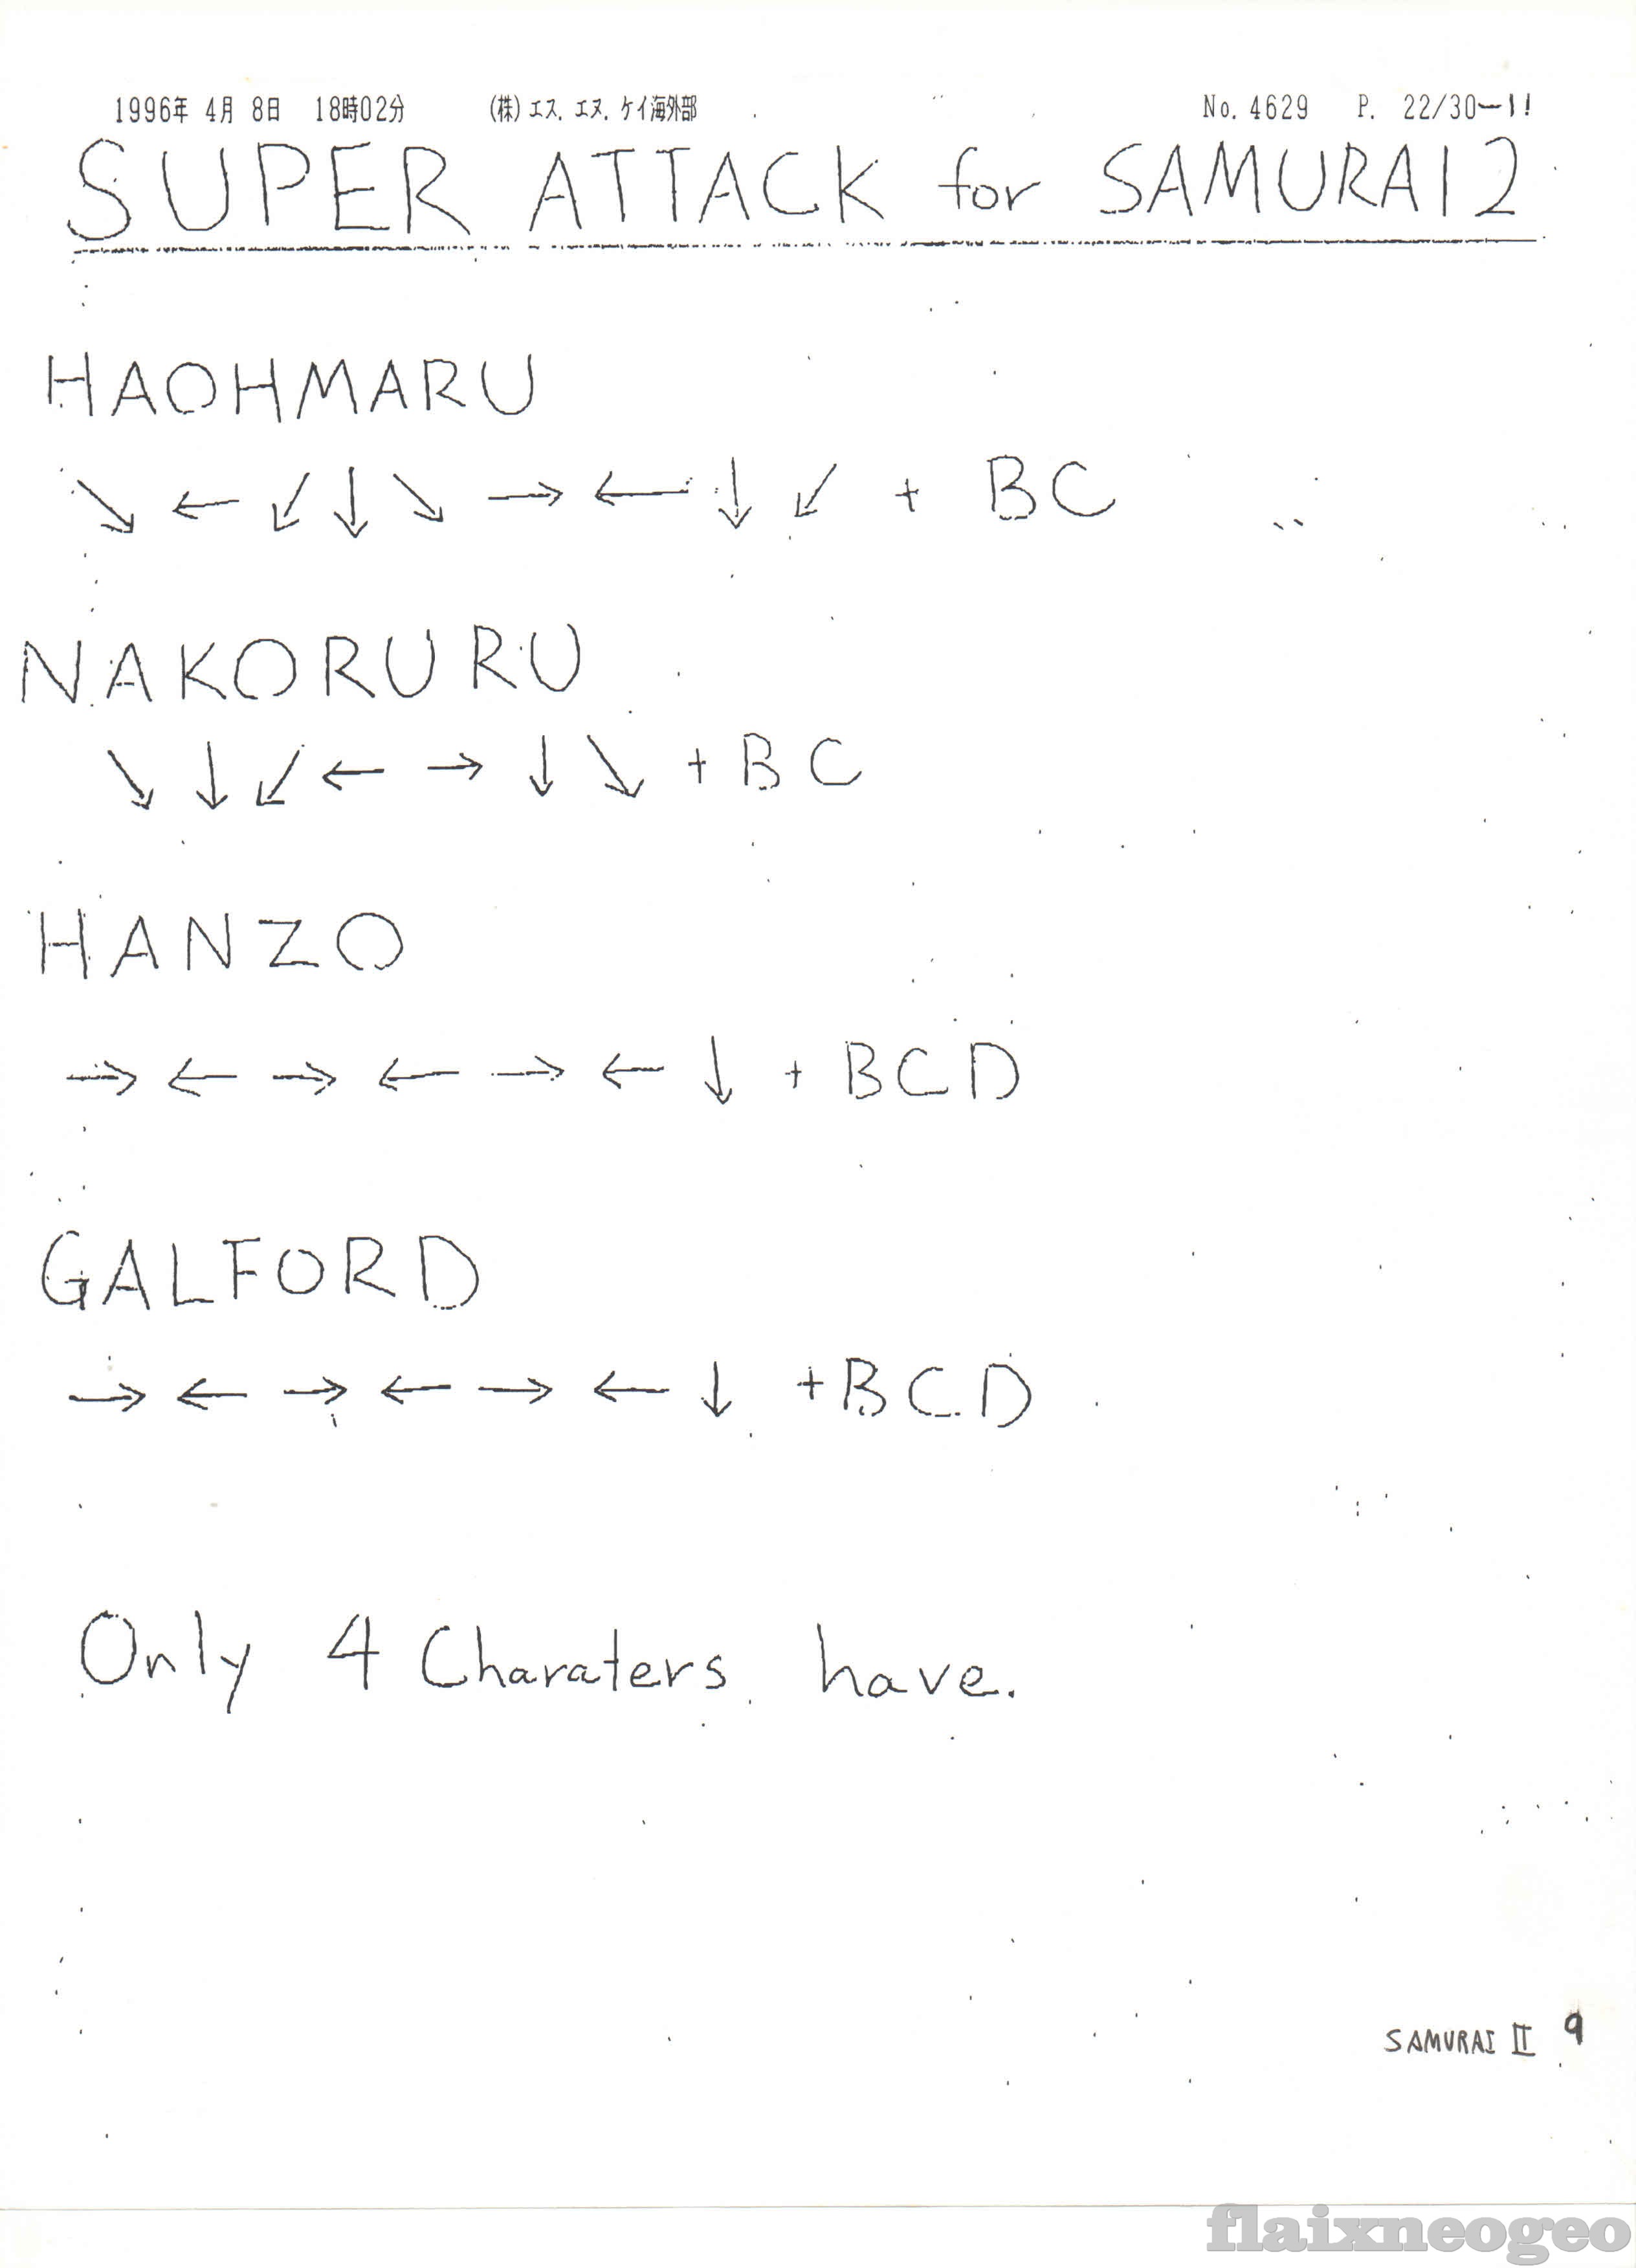 1996年 4月 8日 18時02分 (株)エス.エヌ.ケイ海外部 No.4629 P. 22/30-1!
SUPER ATTACK for SAMURAI 2
HAOHMARU
↘ ← ↙ ↓ ↘ → ← ↓ ↙ + BC
NAKORURU
↘ ↓ ↙ ← → ↓ ↘ + BC
HANZO
→ ← → ← → ← ↓ + BCD
GALFORD
→ ← → ← → ← ↓ + BCD
Only 4 Charaters have.
SAMURAI II 9
flaixneogeo